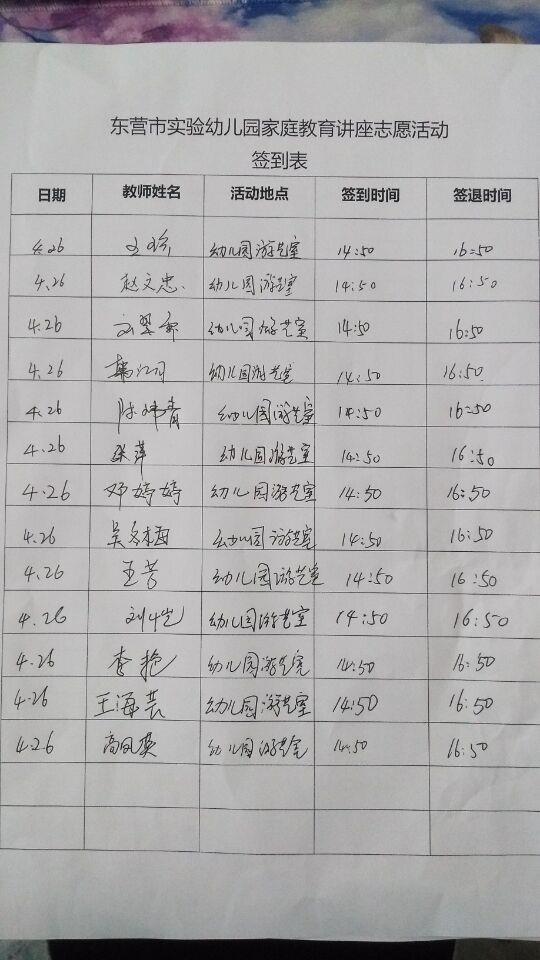 东营市实验幼儿园家庭教育讲座志愿活动
签到表
日期 教师姓名 活动地点 签到时间 签退时间
4.26 幼儿园游艺室 14:50 16:50
4.26 赵文忠 幼儿园游艺室 14:50 16:50
4.26 幼儿园游艺室 14:50 16:50
4.26 幼儿园游艺室 14:50 16:50
4.26 幼儿园游艺室 14:50 16:50
4.26 张萍 幼儿园游艺室 14:50 16:50
4.26 邓婷婷 幼儿园游艺室 14:50 16:50
4.26 吴冬梅 幼儿园游艺室 14:50 16:50
4.26 王芳 幼儿园游艺室 14:50 16:50
4.26 幼儿园游艺室 14:50 16:50
4.26 李艳 幼儿园游艺室 14:50 16:50
4.26 王海芸 幼儿园游艺室 14:50 16:50
4.26 高凤英 幼儿园游艺室 14:50 16:50